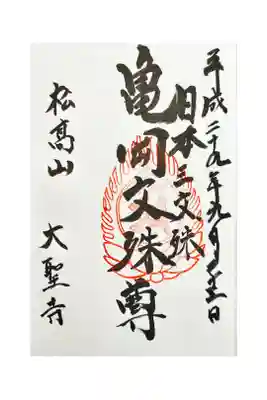 平成二十九年九月
日本三文殊
亀岡文殊尊
松高山 大聖寺